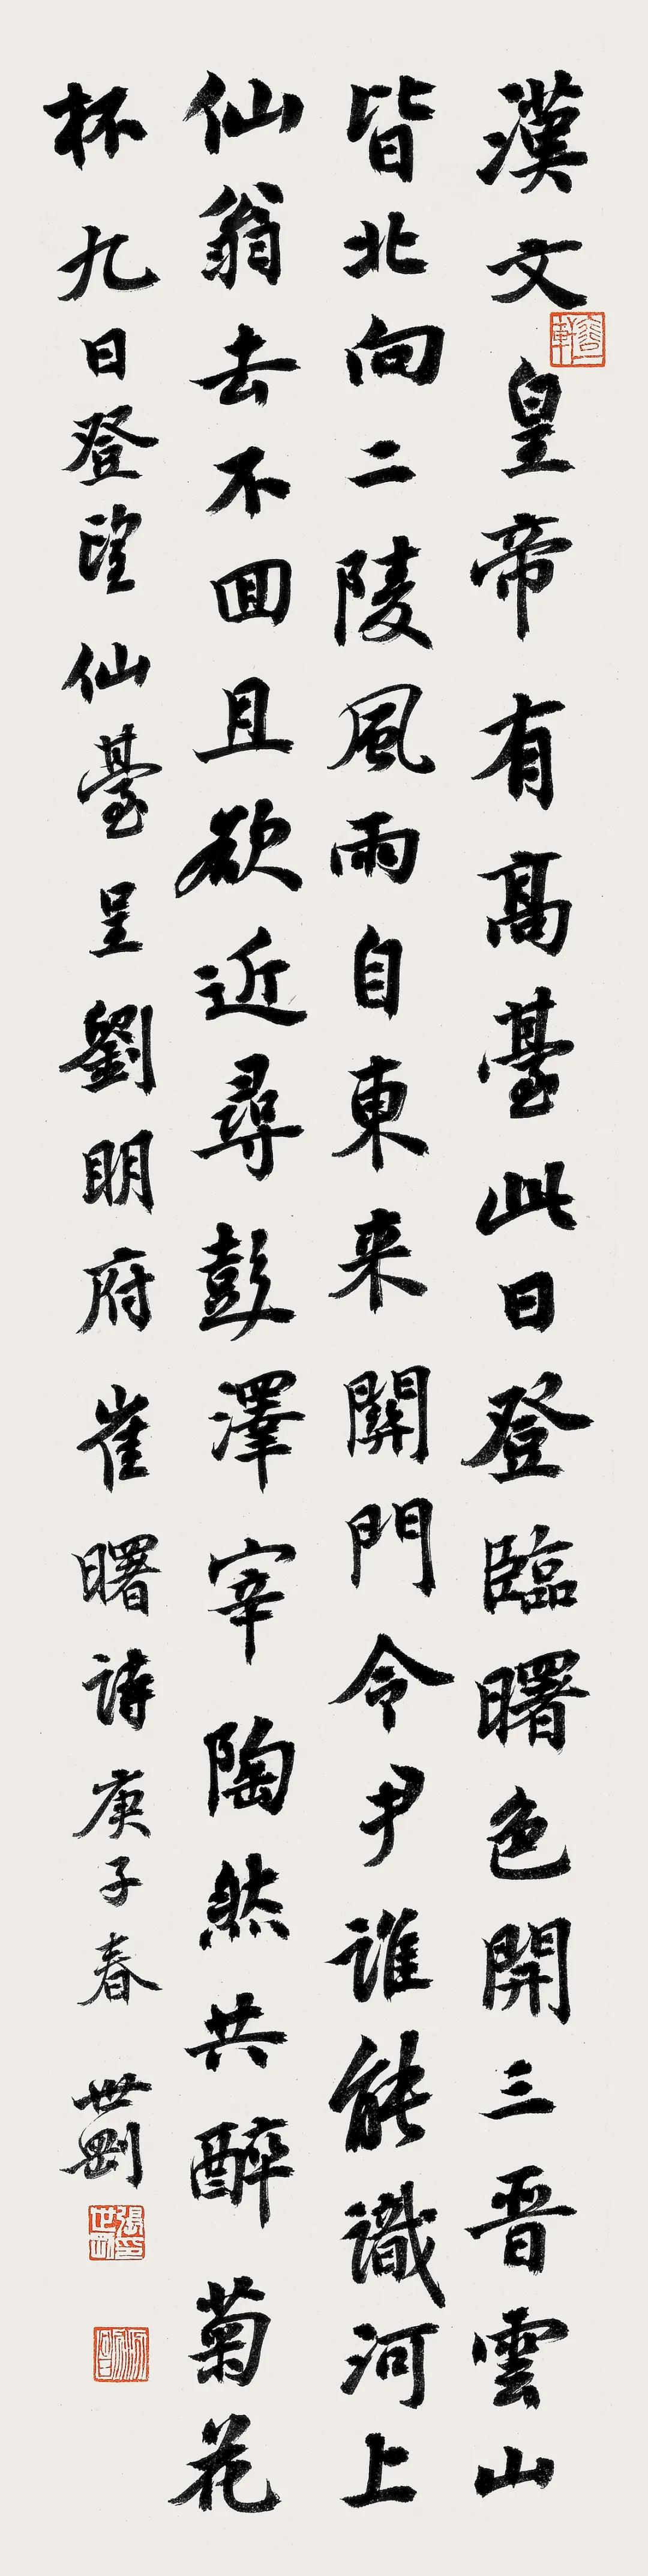 漢文皇帝有高臺此日登臨曙色開三晋雲山
皆北向二陵風雨自東来關門令尹誰能識河上
仙翁去不囬且欲近尋彭澤宰陶然共醉菊花
杯九日登望仙臺呈劉明府崔曙詩庚子春世劏